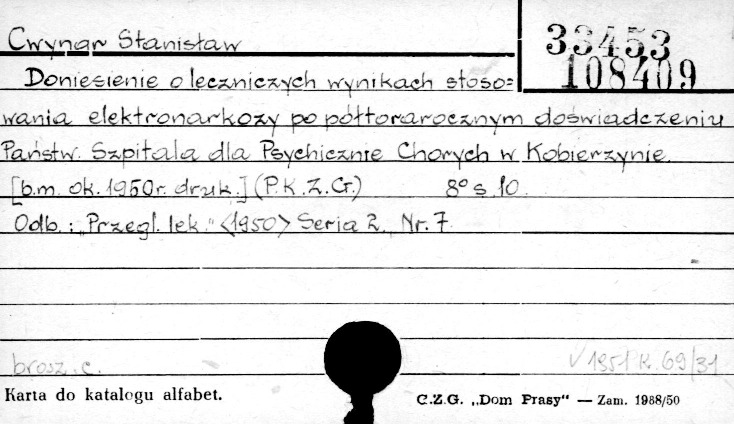 Cwynar Stanisław
33453
108409
Doniesienie o leczniczych wynikach stoso=
wania elektronarkozy po półtorarocznym doświadczeniu
Państw. Szpitala dla Psychicznie Chorych w Kobierzynie.
[b.m. ok. 1950r. druk.] (P.K.Z.G.) 8° s. 10.
Odb.: „Przegl. lek." <1950> Seria 2, Nr. 7.
brosz. c. V 1951 K. 69/31
Karta do katalogu alfabet.
C.Z.G. „Dom Prasy“ — Zam. 1988/50